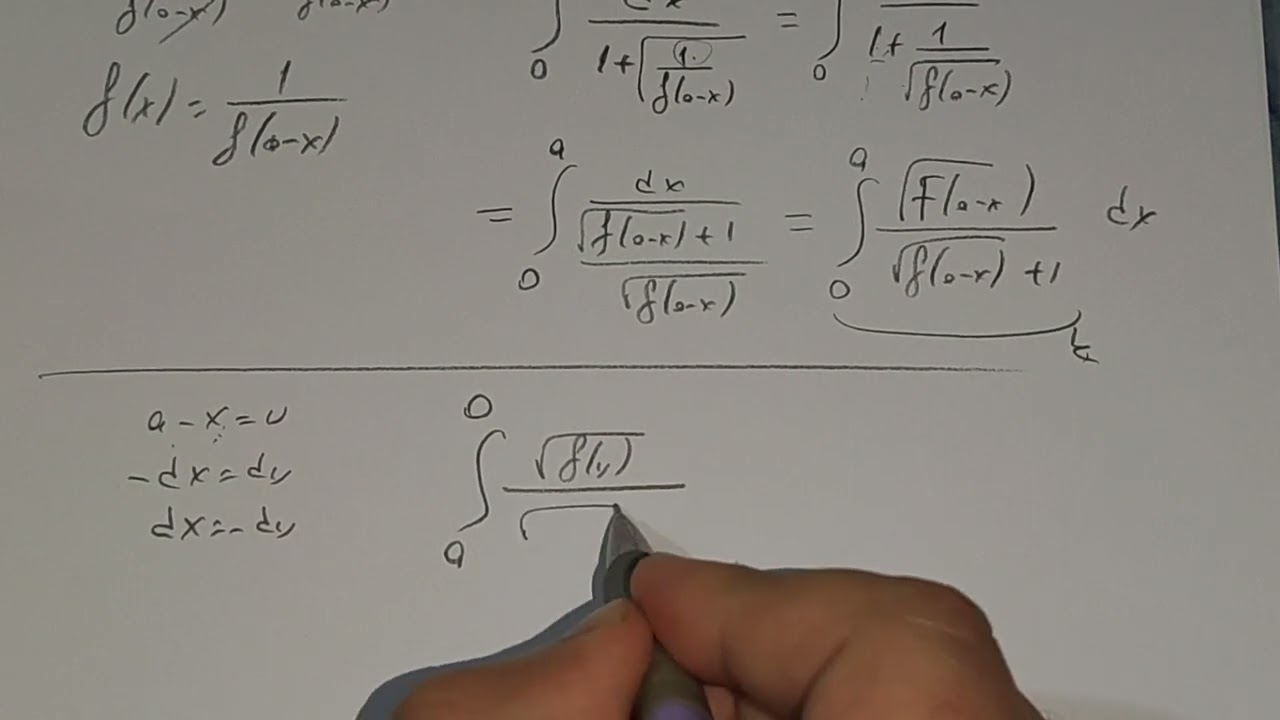 f(a-x) f(a-x)
∫₀ dx / (1+√(1/f(a-x))) = ∫₀ / (1+ 1/√f(a-x))
f(x) = 1/f(a-x)
= ∫₀ᵃ dx / ((√f(a-x) + 1)/√f(a-x)) = ∫₀ᵃ √f(a-x) / (√f(a-x) + 1) dx
a - x = u
-dx = du
dx = -du
∫ₐ⁰ √f(u) / √